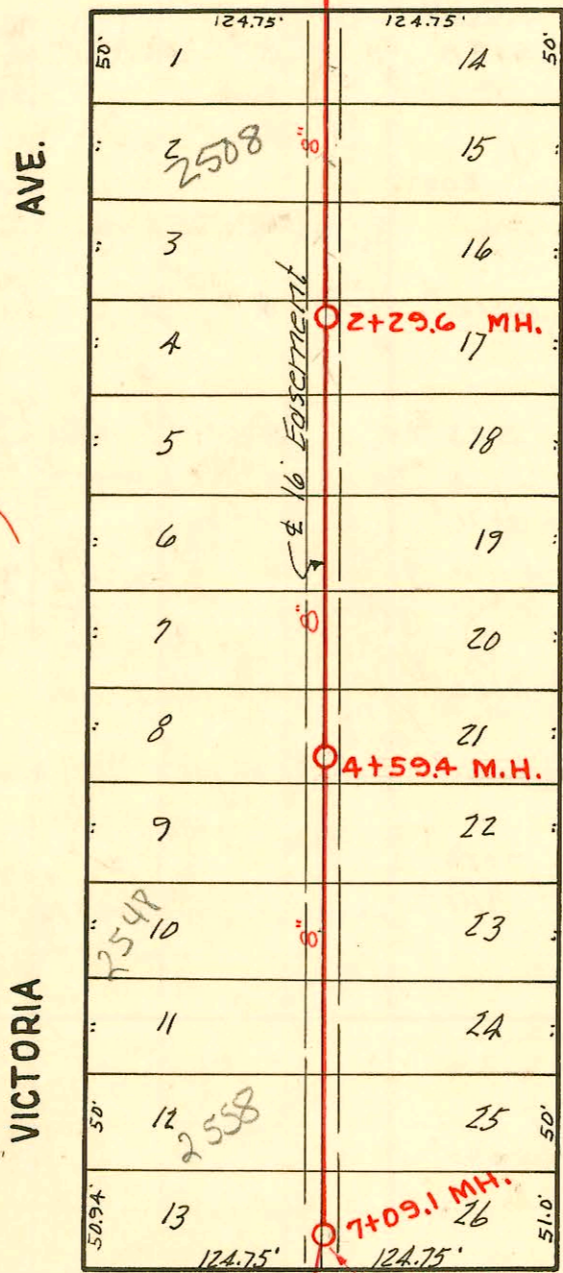 124.75' 124.75'
50' 1 14 50'
" 2 2508 8" 15 "
" 3 16 "
2+29.6 MH.
" 4 17 "
" 5 18 "
℄ 16' Easement
" 6 19 "
" 7 8" 20 "
" 8 21 "
4+59.4 M.H.
" 9 22 "
2548 10 8" 23 "
" 11 24 "
50' 12 2558 25 50'
50.94' 13 7+09.1 MH. 26 51.0'
124.75' 124.75'
VICTORIA AVE.